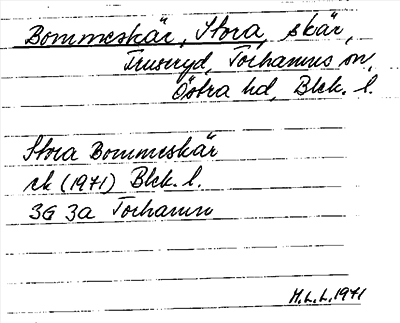 Bommeskär, Stora, skär,
Truseryd, Torhamns sn,
Östra hd, Blek. l.
Stora Bommeskär
rk (1971) Blek. l.
3G 3a Torhamn
M.L.L. 1971